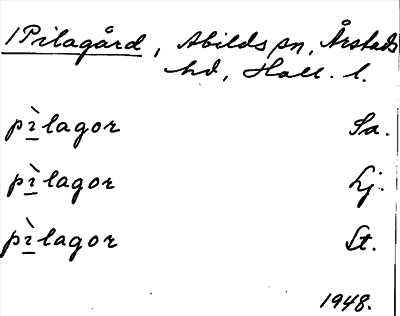 1 Pilagård, Abilds sn, Årstads
hd, Hall. l.
pì̱lagor Sa.
pì̱lagor Lj.
pì̱lagor St.
1948.